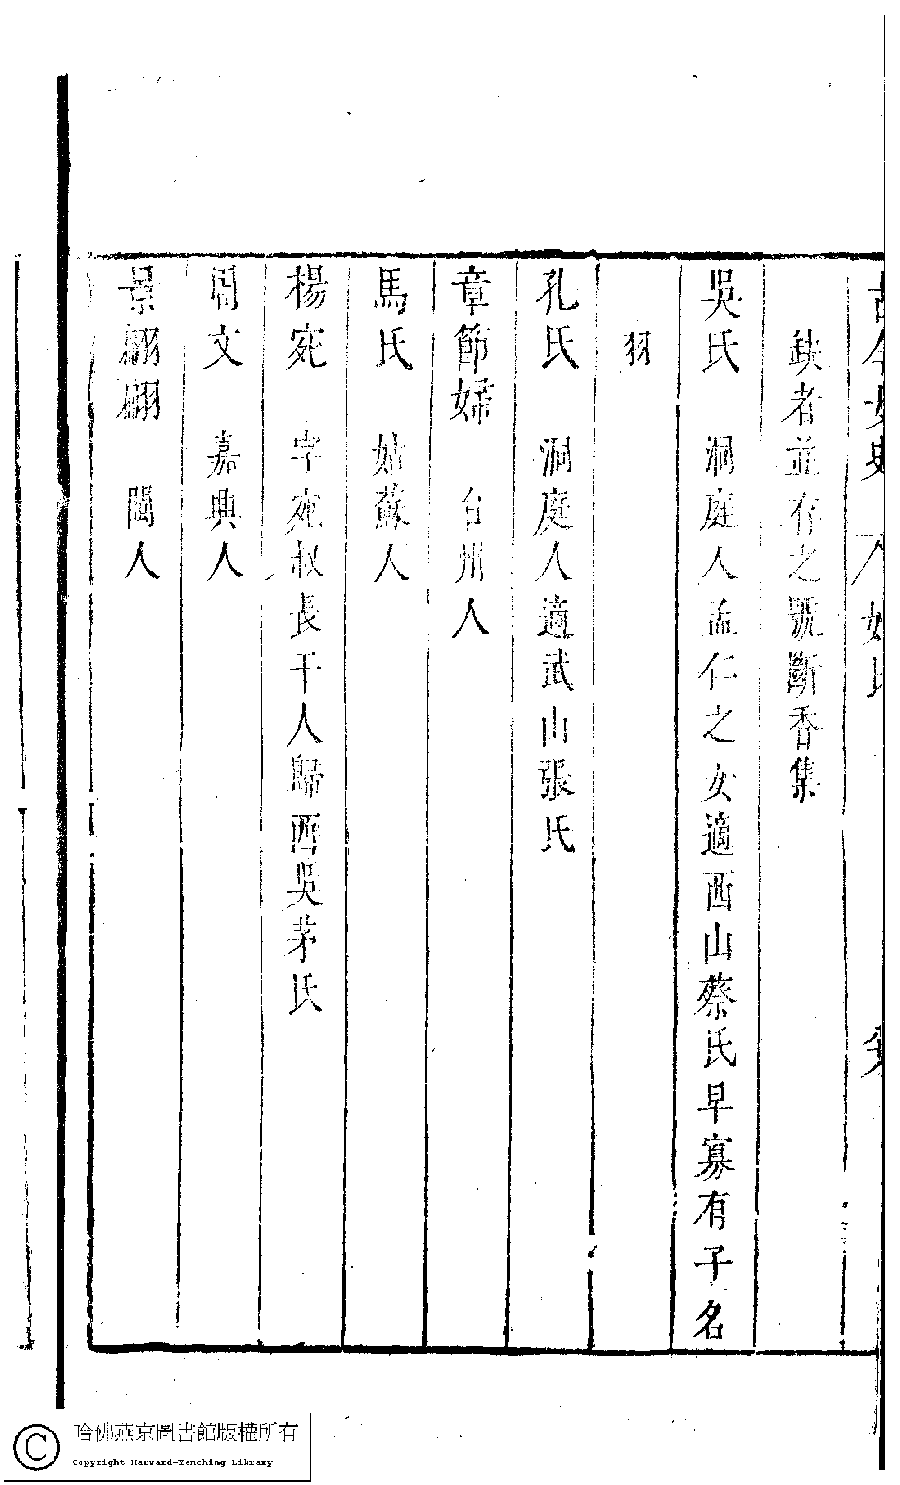 古今女史 姓氏
缺者並存之號斷香集
吳氏 洞庭人孟仁之女適西山蔡氏早寡有子名
羽
孔氏 洞庭人適武山張氏
章節婦 台州人
馬氏 姑蘇人
楊宛 字宛叔長干人歸西吳茅氏
周文 嘉興人
景翩翩 閩人
哈佛燕京圖書館版權所有
Copyright Harvard-Yenching Library